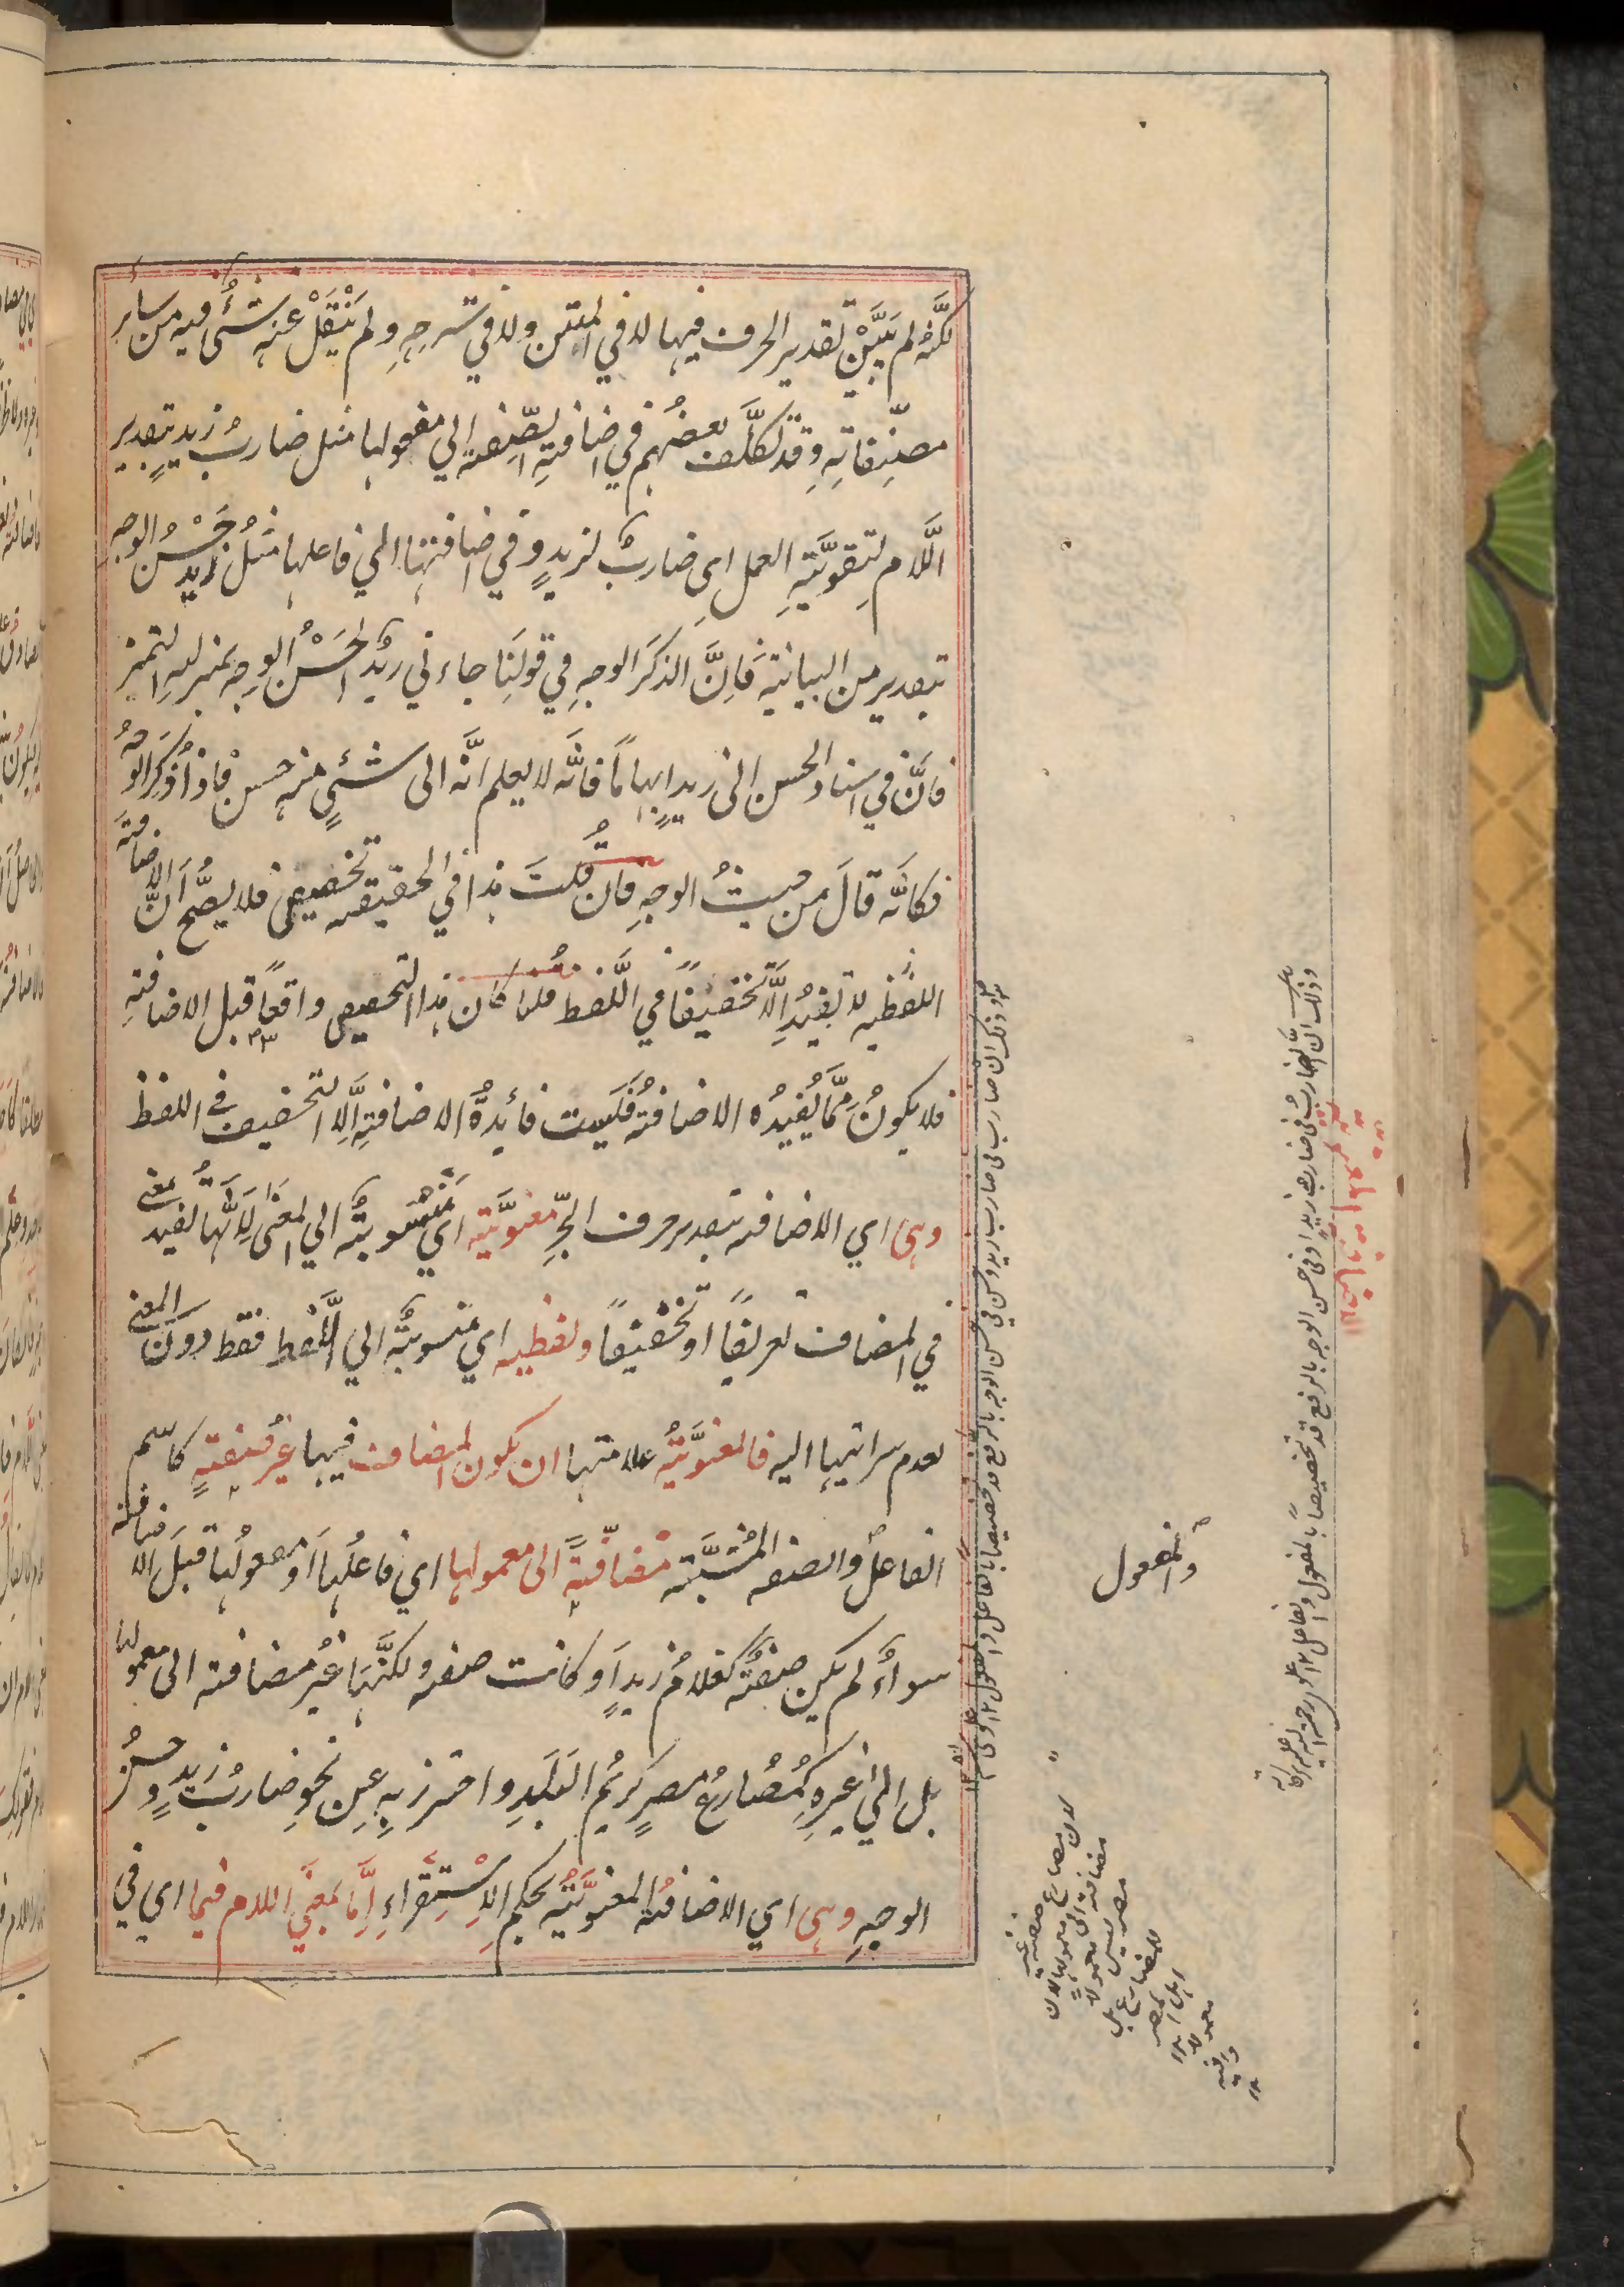 لكنَّهُ لم يُبَيَّنْ تقدير الحرف فيها لا في المتن ولا في شرحِهِ ولم يُنْقَلْ عنه شئٌ فيه من سائر
مصنِّفاتِهِ وقد تكلَّف بعضُهم في اضافةِ الصِّفة الي مفعولها مثل ضاربُ زيدٍ بتقدير
اللَّام لِتقويَّتِهِ العمل اى ضاربٌ لزيدٍ و في اضافتها الي فاعلها مثلُ زيد حَسْنُ الوجهِ
بتقدير من البيانيَّة فَاِنَّ الذكَر الوجهِ في قولَنِا جاءني زيدٌ الحَسْنُ الوجهِ بمنزلهِ التميز
فاَنَّ في اسناد الحسن الى زيدٍ ابهاماً فانَّه لا يعلم انَّه الى شئىٍ منه حسن فاذا ذُكِرَ الوجهُ
فكانَّه قالَ من حيثُ الوجهِ فان قُلتَ هذا في الحقيقه تخصيص فلا يصحُّ اَنَّ الاضافةَ
اللفظيه لا تفيدُ اِلَّا تخفيفًا في اللَّفظ قلنا كان هذا التخصيص واقعًا قبل الاضافةِ
فلا يكونُ مِمَّا يُفيدُه الاضافةُ فَلَيست فائدةُ الاضافةِ اِلَّا التخفيف فى اللفظ
وهى اي الاضافه بتقدير حرف الجرِّ معنويَّةٌ اى مَنْسُوبةٌ الي المعنَى لِاَنَّها تُفيد معنى
في المضاف تعريفًا او تخفيفًا ولفظيه اي منسوبةٌ الي اللَّفظ فقط دون المعنى
لعدم سرايتها اليه فالمعنَويَّةُ علامتها ان يكون المضاف فيها غيرُ صفةٍ كاسم
الفاعل والصفه المُشبَّهَة مُضافّةٍ الى معمولها اى فاعلُها اَو مفعولُها قبلَ الاضافته
والمفعول
سواءٌ لم يكن صفةٌ كغلامُ زيدٍ اَو كانت صفه ولكنَّها غيرُ مضافته الى معمولها
بل الىٰ غيرِهِ كمُصارعُ مصرٍ كريمُ البَلَدِ واحترز بِهِ عِن نحوِ ضاربُ زيدٍ وحسنُ
الوجهِ وهى اي الاضافةُ المعنويَّةُ بحكم الاِستِقراءِ اِمَّا بمعنَى اللام فيما اى في
وذلك انَّ الضاربُ في ضاربُ زيداً وفى حسن الوجه بالرفع قد تخصيصاً بالمفعول والفاعل
لان مصارع صفه غير
مضافة الى معمولها لان
مصر ليس معمولا
للمضارع بل